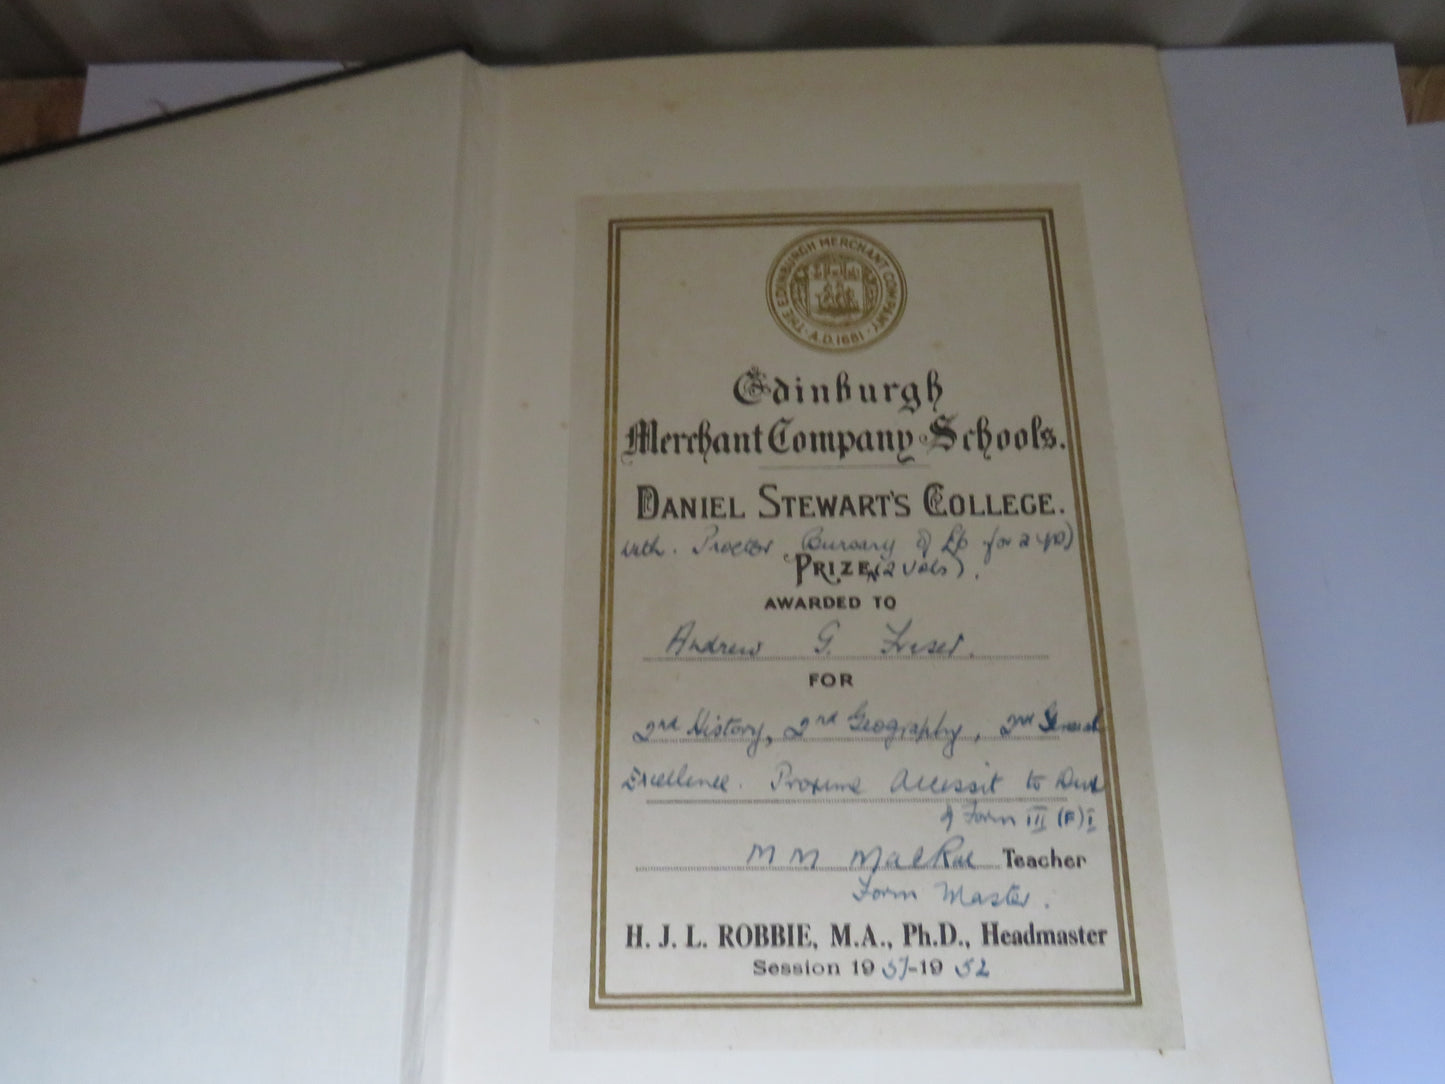 THE EDINBURGH MERCHANT COMPANY · A.D. 1681 ·
Edinburgh
Merchant Company Schools.
DANIEL STEWART'S COLLEGE.
with Proctor Bursary of £6 for 2 yrs)
PRIZE (2 vols).
AWARDED TO
Andrew G. Fraser.
FOR
2nd History, 2nd Geography, 2nd General
Excellence. Proxime Accessit to Dux
of Form III (F) I
M M MacRae Teacher
Form Master.
H. J. L. ROBBIE, M.A., Ph.D., Headmaster
Session 1951-1952